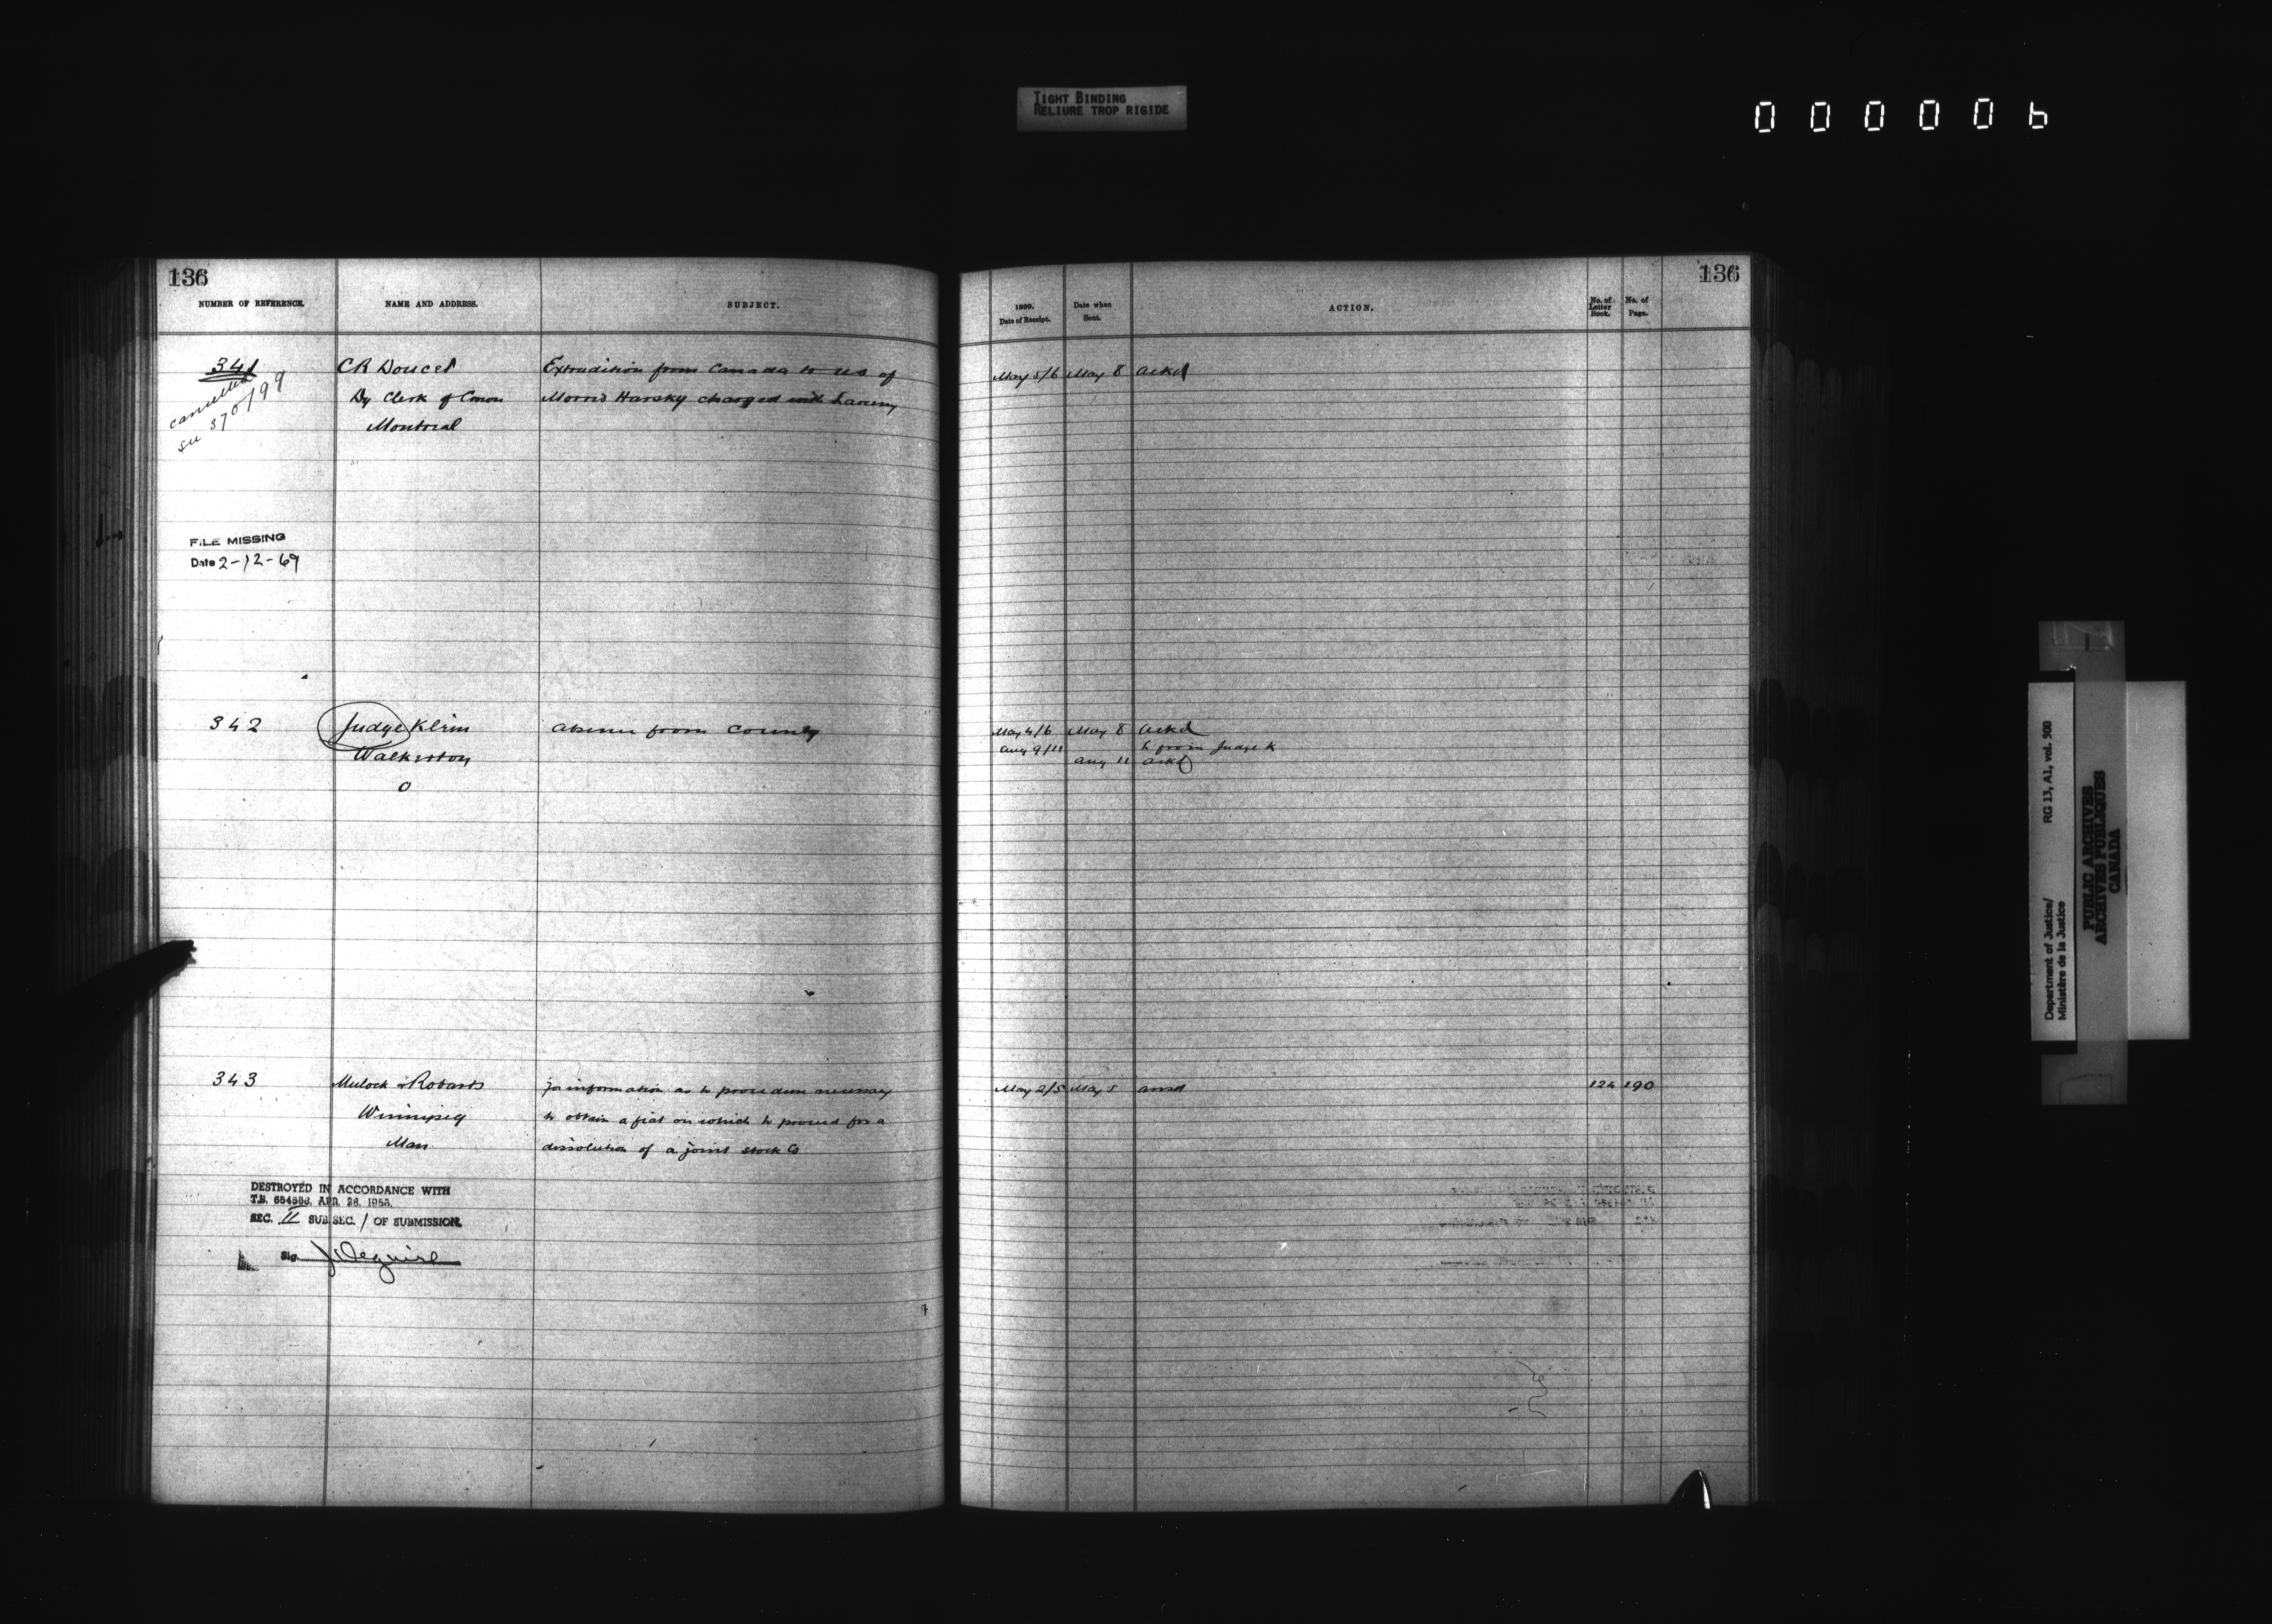 TIGHT BINDING
RELIURE TROP RIGIDE
000006
136
NUMBER OF REFERENCE.
NAME AND ADDRESS.
SUBJECT.
341
cancelled
see 370/99
C R Doucet
Dy Clerk of Crown
Montreal
Extradition from Canada to US of
Morris Harsky charged with Larceny
FILE MISSING
Date 2-12-69
342
Judge Klein
Walkerton
O
absence from County
343
Mulock & Robarts
Winnipeg
Man
for information as to procedure necessary
to obtain a fiat on which to proceed for a
dissolution of a joint stock Co
DESTROYED IN ACCORDANCE WITH
T.B. APR. 26,
SEC. II SUB SEC. 1 OF SUBMISSION.
Sig.
136
1899.
Date of Receipt.
Date when
Sent.
ACTION.
No. of
Letter
Book.
No. of
Page.
May 5/6 May 8 ackd
May 4/6 May 8 ackd
Aug 9/11 L from Judge K
Aug 11 ackd
May 2/5 May 5 ansd 124 190
Department of Justice/
Ministère de la Justice
RG 13, A1, vol. 500
PUBLIC ARCHIVES
ARCHIVES PUBLIQUES
CANADA